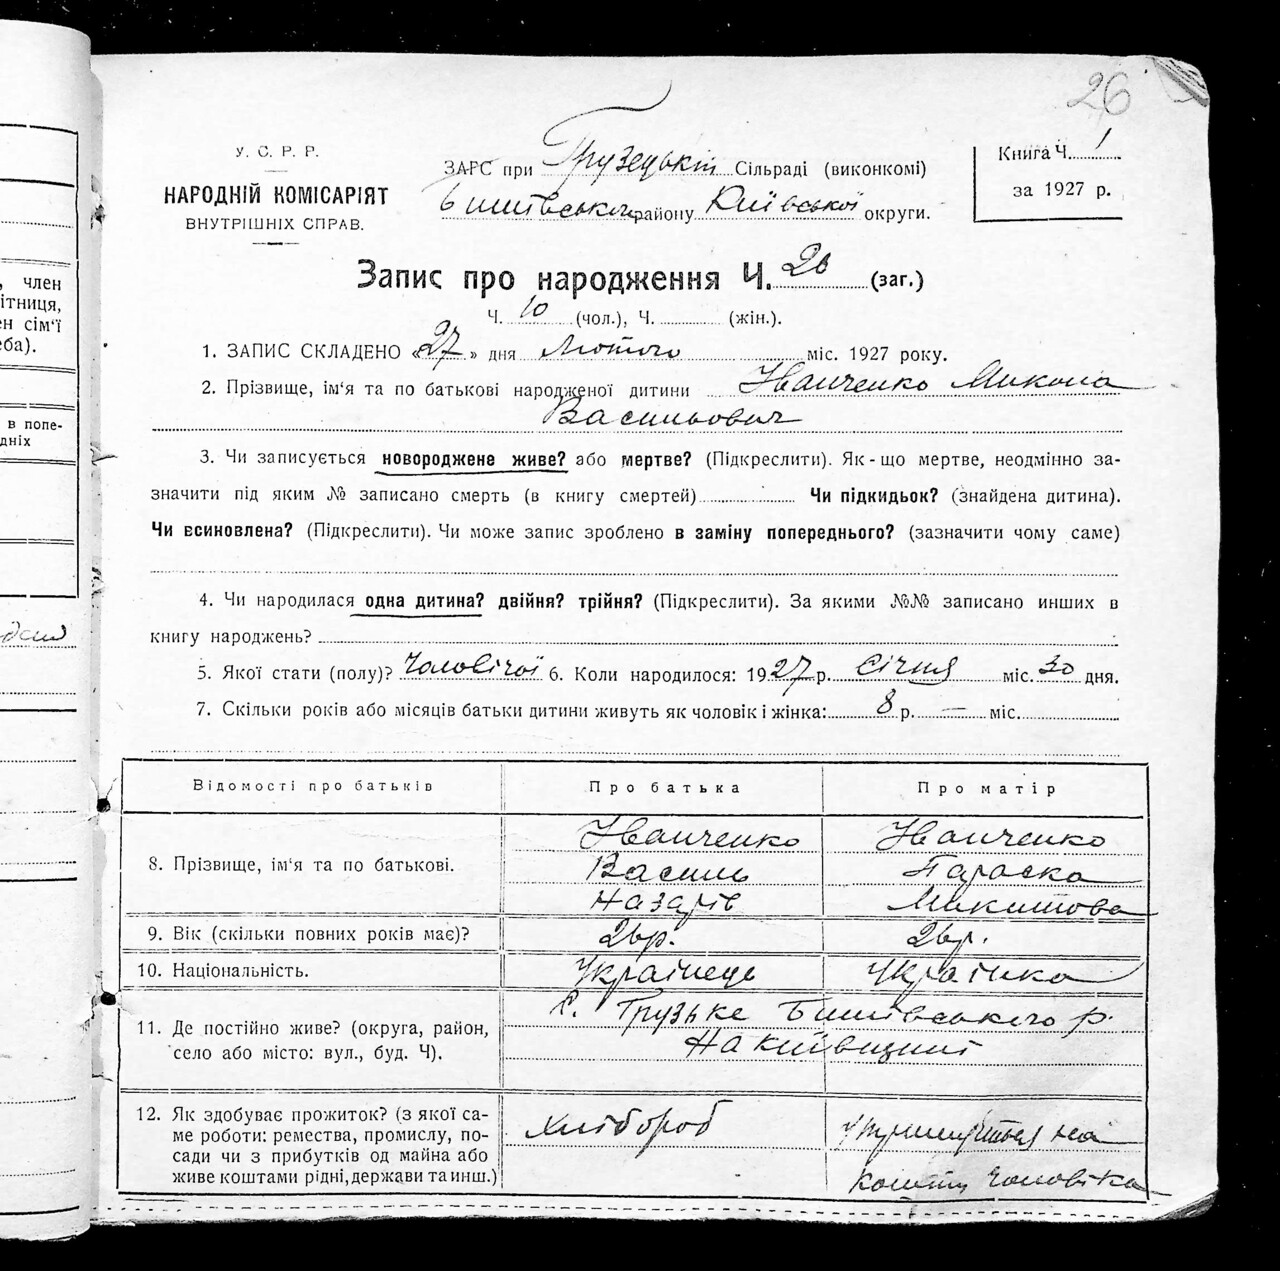 26
У. С. Р. Р.
НАРОДНІЙ КОМІСАРІЯТ
ВНУТРІШНІХ СПРАВ.
ЗАГС при Грузецькій Сільраді (виконкомі)
Бишівського району Київської округи.
Книга Ч. 1
за 1927 р.
Запис про народження Ч. 26 (заг.)
Ч. 10 (чол.), Ч. (жін.).
1. ЗАПИС СКЛАДЕНО «27» дня Лютого міс. 1927 року.
2. Прізвище, ім'я та по батькові народженої дитини Іванченко Микола
Васильович
3. Чи записується новороджене живе? або мертве? (Підкреслити). Як-що мертве, неодмінно за-
значити під яким № записано смерть (в книгу смертей) Чи підкидьок? (знайдена дитина).
Чи всиновлена? (Підкреслити). Чи може запис зроблено в заміну попереднього? (зазначити чому саме)
4. Чи народилася одна дитина? двійня? трійня? (Підкреслити). За якими №№ записано инших в
книгу народжень?
5. Якої стати (полу)? Чоловічої 6. Коли народилося: 1927 р. січня міс. 30 дня.
7. Скільки років або місяців батьки дитини живуть як чоловік і жінка: 8 р. — міс.
Відомості про батьків Про батька Про матір
8. Прізвище, ім'я та по батькові.
Іванченко Іванченко
Василь Параска
Назарів Микитова
9. Вік (скільки повних років має)? 26 р. 26 р.
10. Національність. Українець Українка
11. Де постійно живе? (округа, район,
село або місто: вул., буд. Ч).
с. Грузьке Бишівського р.
На Київщині
12. Як здобуває прожиток? (з якої са-
ме роботи: ремества, промислу, по-
сади чи з прибутків од майна або
живе коштами рідні, держави та инш.)
хлібороб
утримується на
кошти чоловіка
, член
ітниця,
н сім'ї
еба).
в попе-
дніх